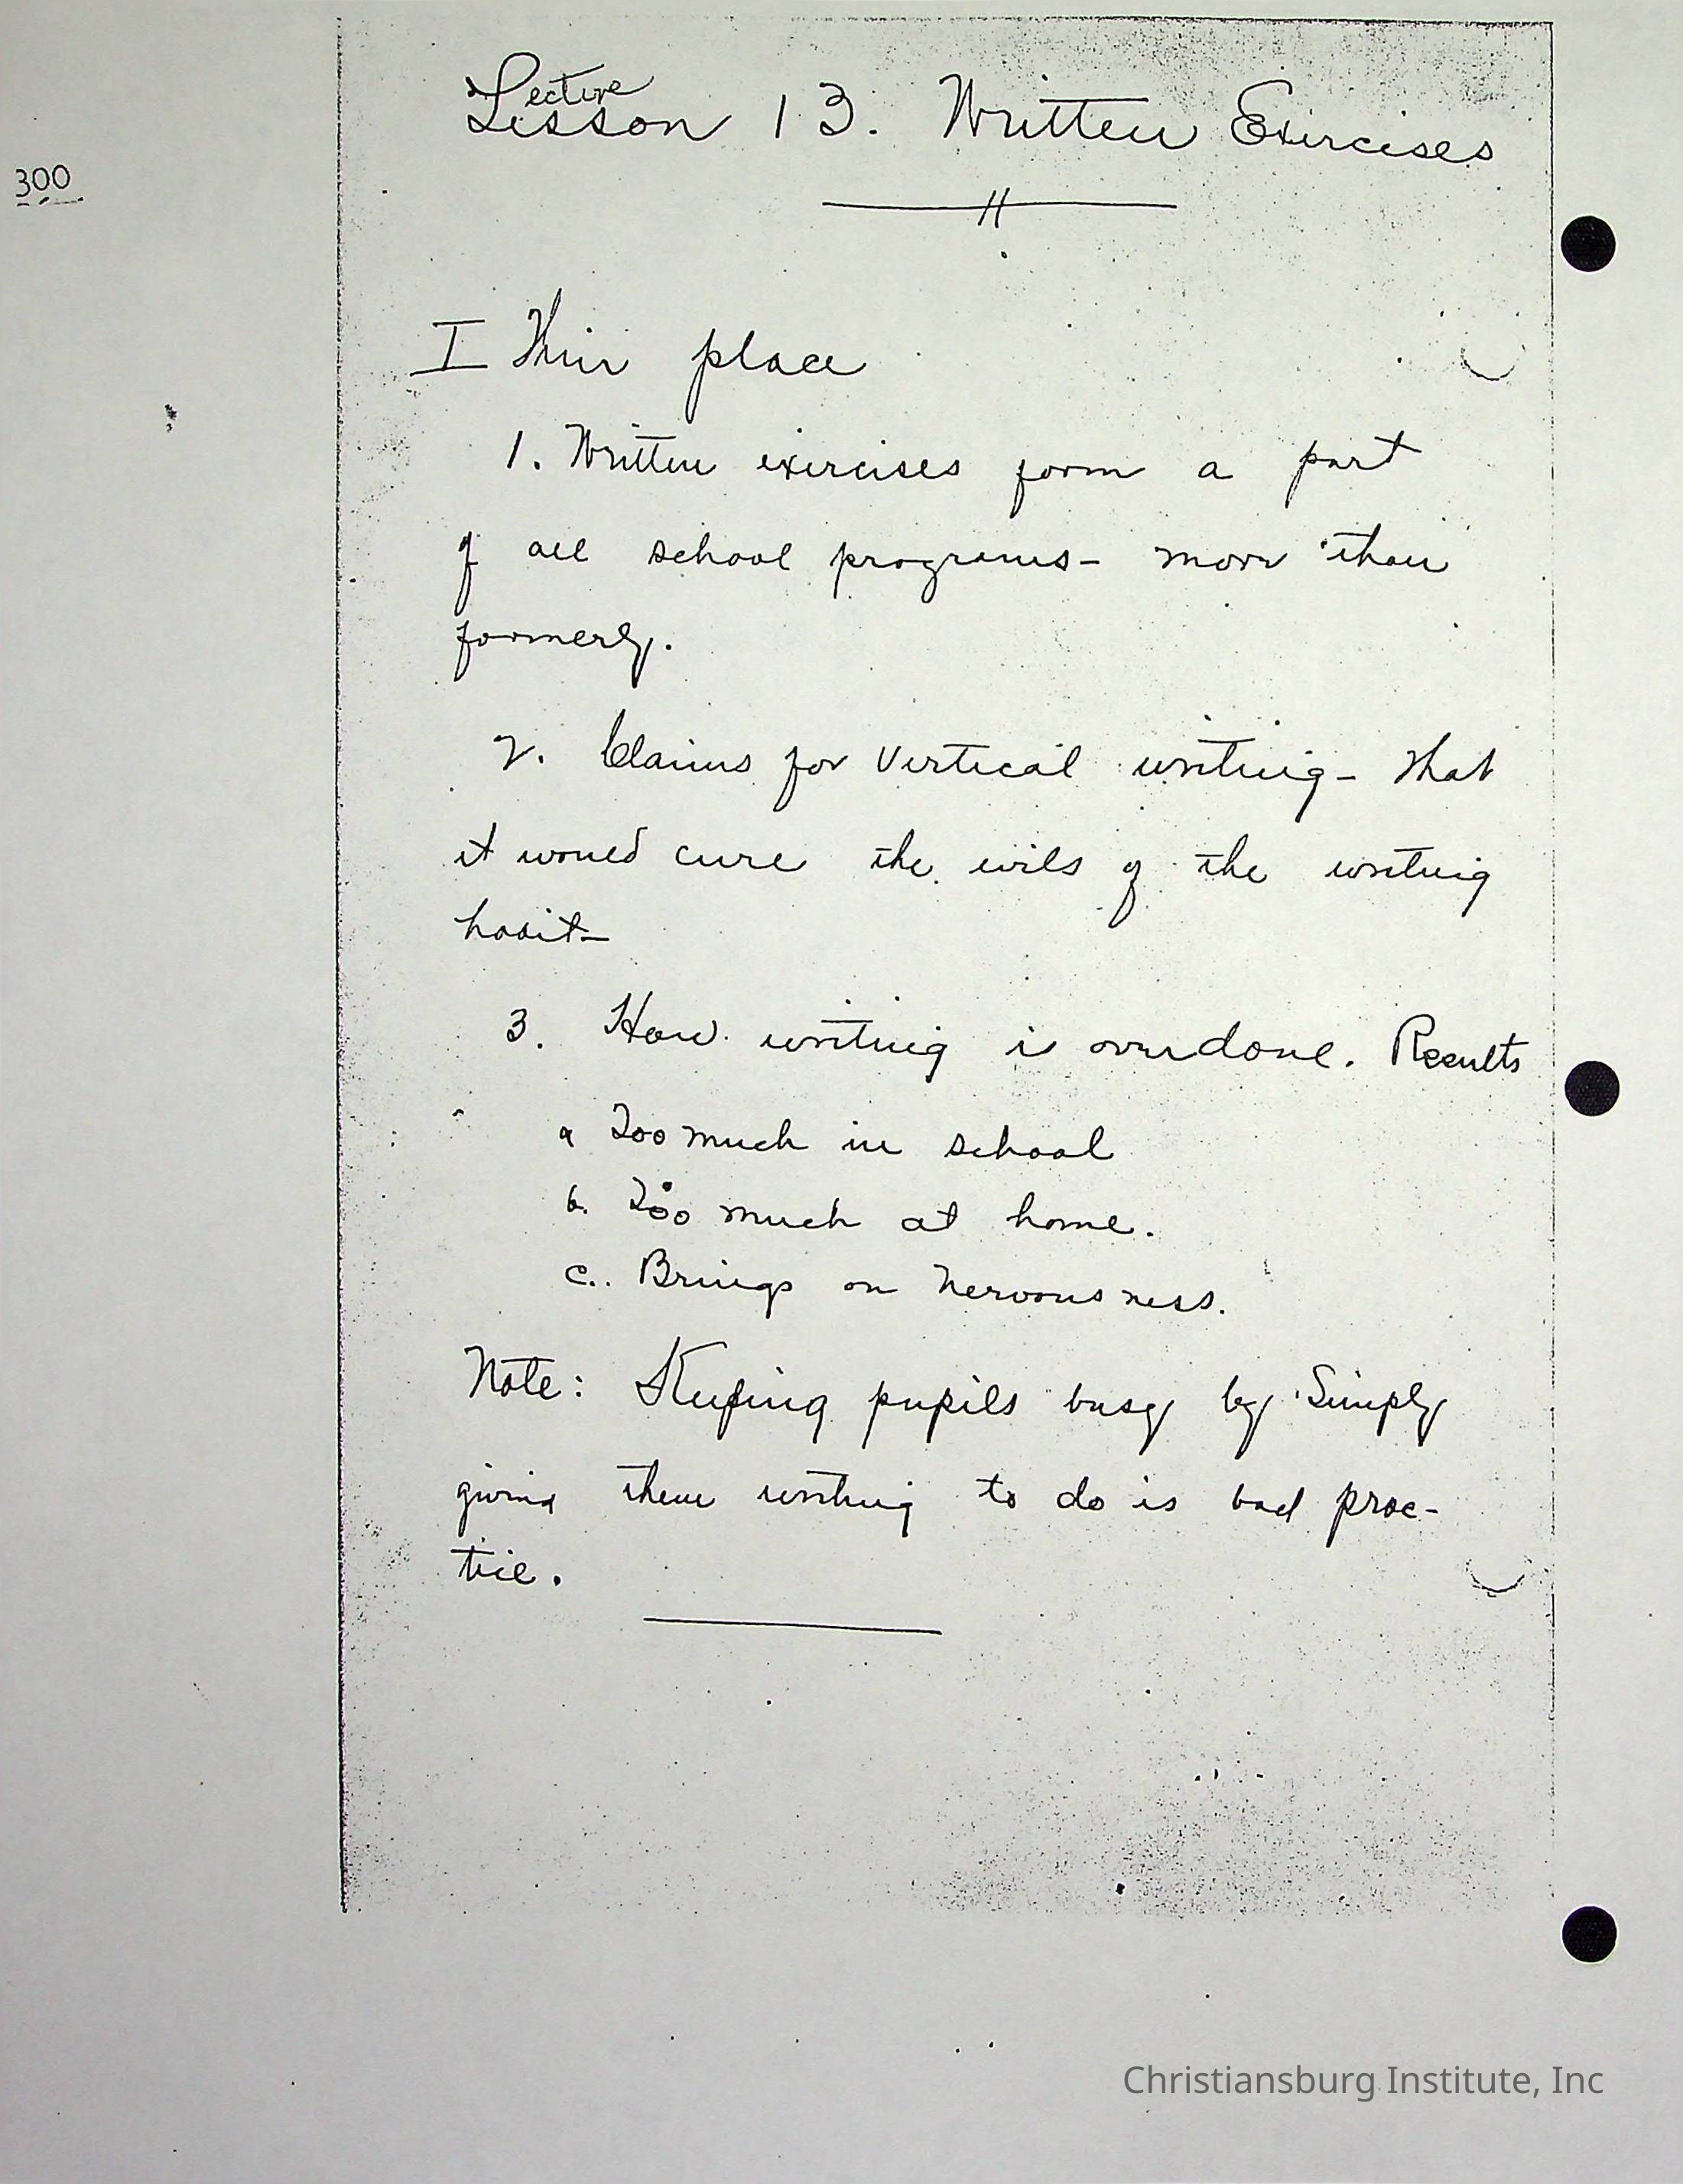 Lecture
Lesson 13. Written Exercises
300
I Their place
1. Written exercises form a part
of all school programs- more than
formerly.
2. Claims for Vertical writing- that
it would cure the evils of the writing
habit-
3. How writing is overdone. Results
a Too much in school
b. Too much at home.
c.. Brings on nervousness.
Note: Keeping pupils busy by Simply
giving them writing to do is bad prac-
tice.
Christiansburg Institute, Inc